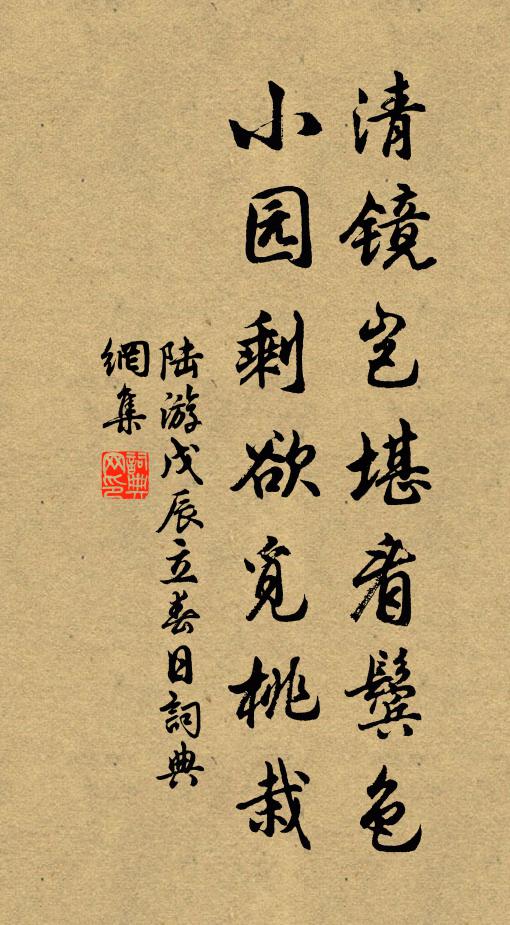 清镜岂堪看鬓色
小园剩欲觅桃栽
陆游戊辰立春日詞典
網集
詞典
网印